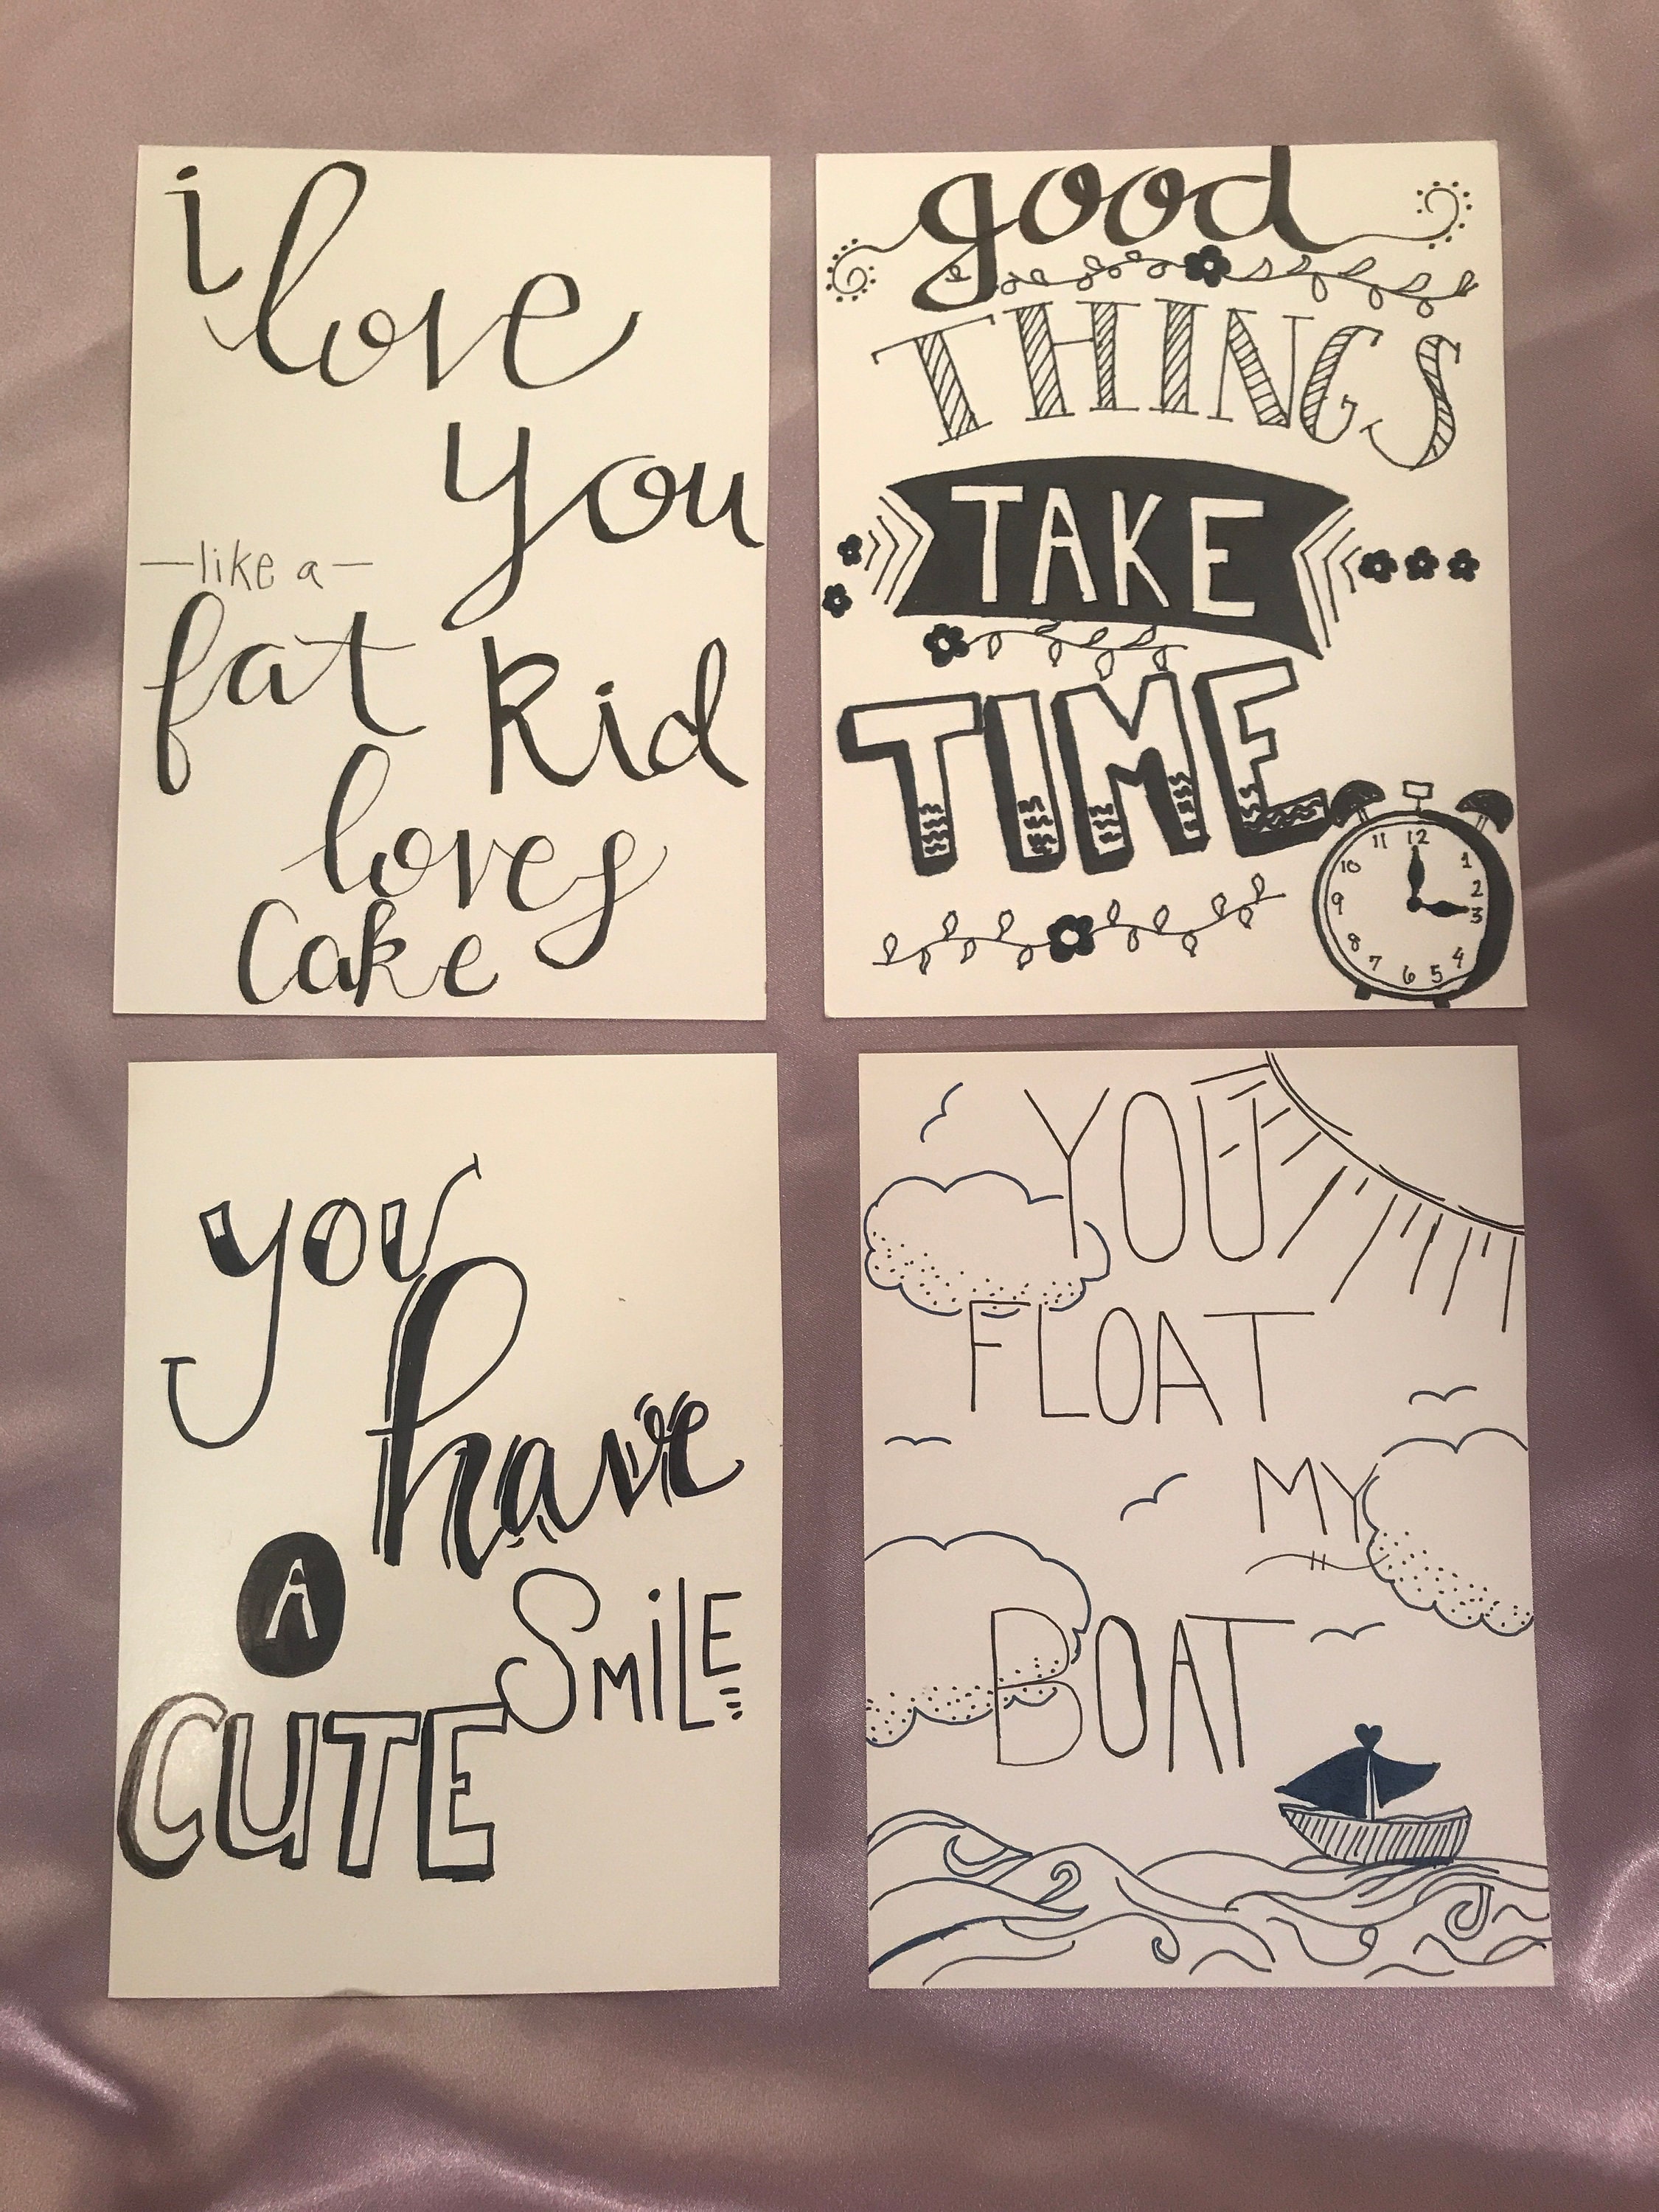 i
love
you
—like a—
fat kid
loves
Cake
good
THINGS
TAKE
TIME
11 12 1
10 2
9 3
8 4
7 6 5
you
have
A
CUTE SMiLE
YOU
FLOAT
MY
BOAT